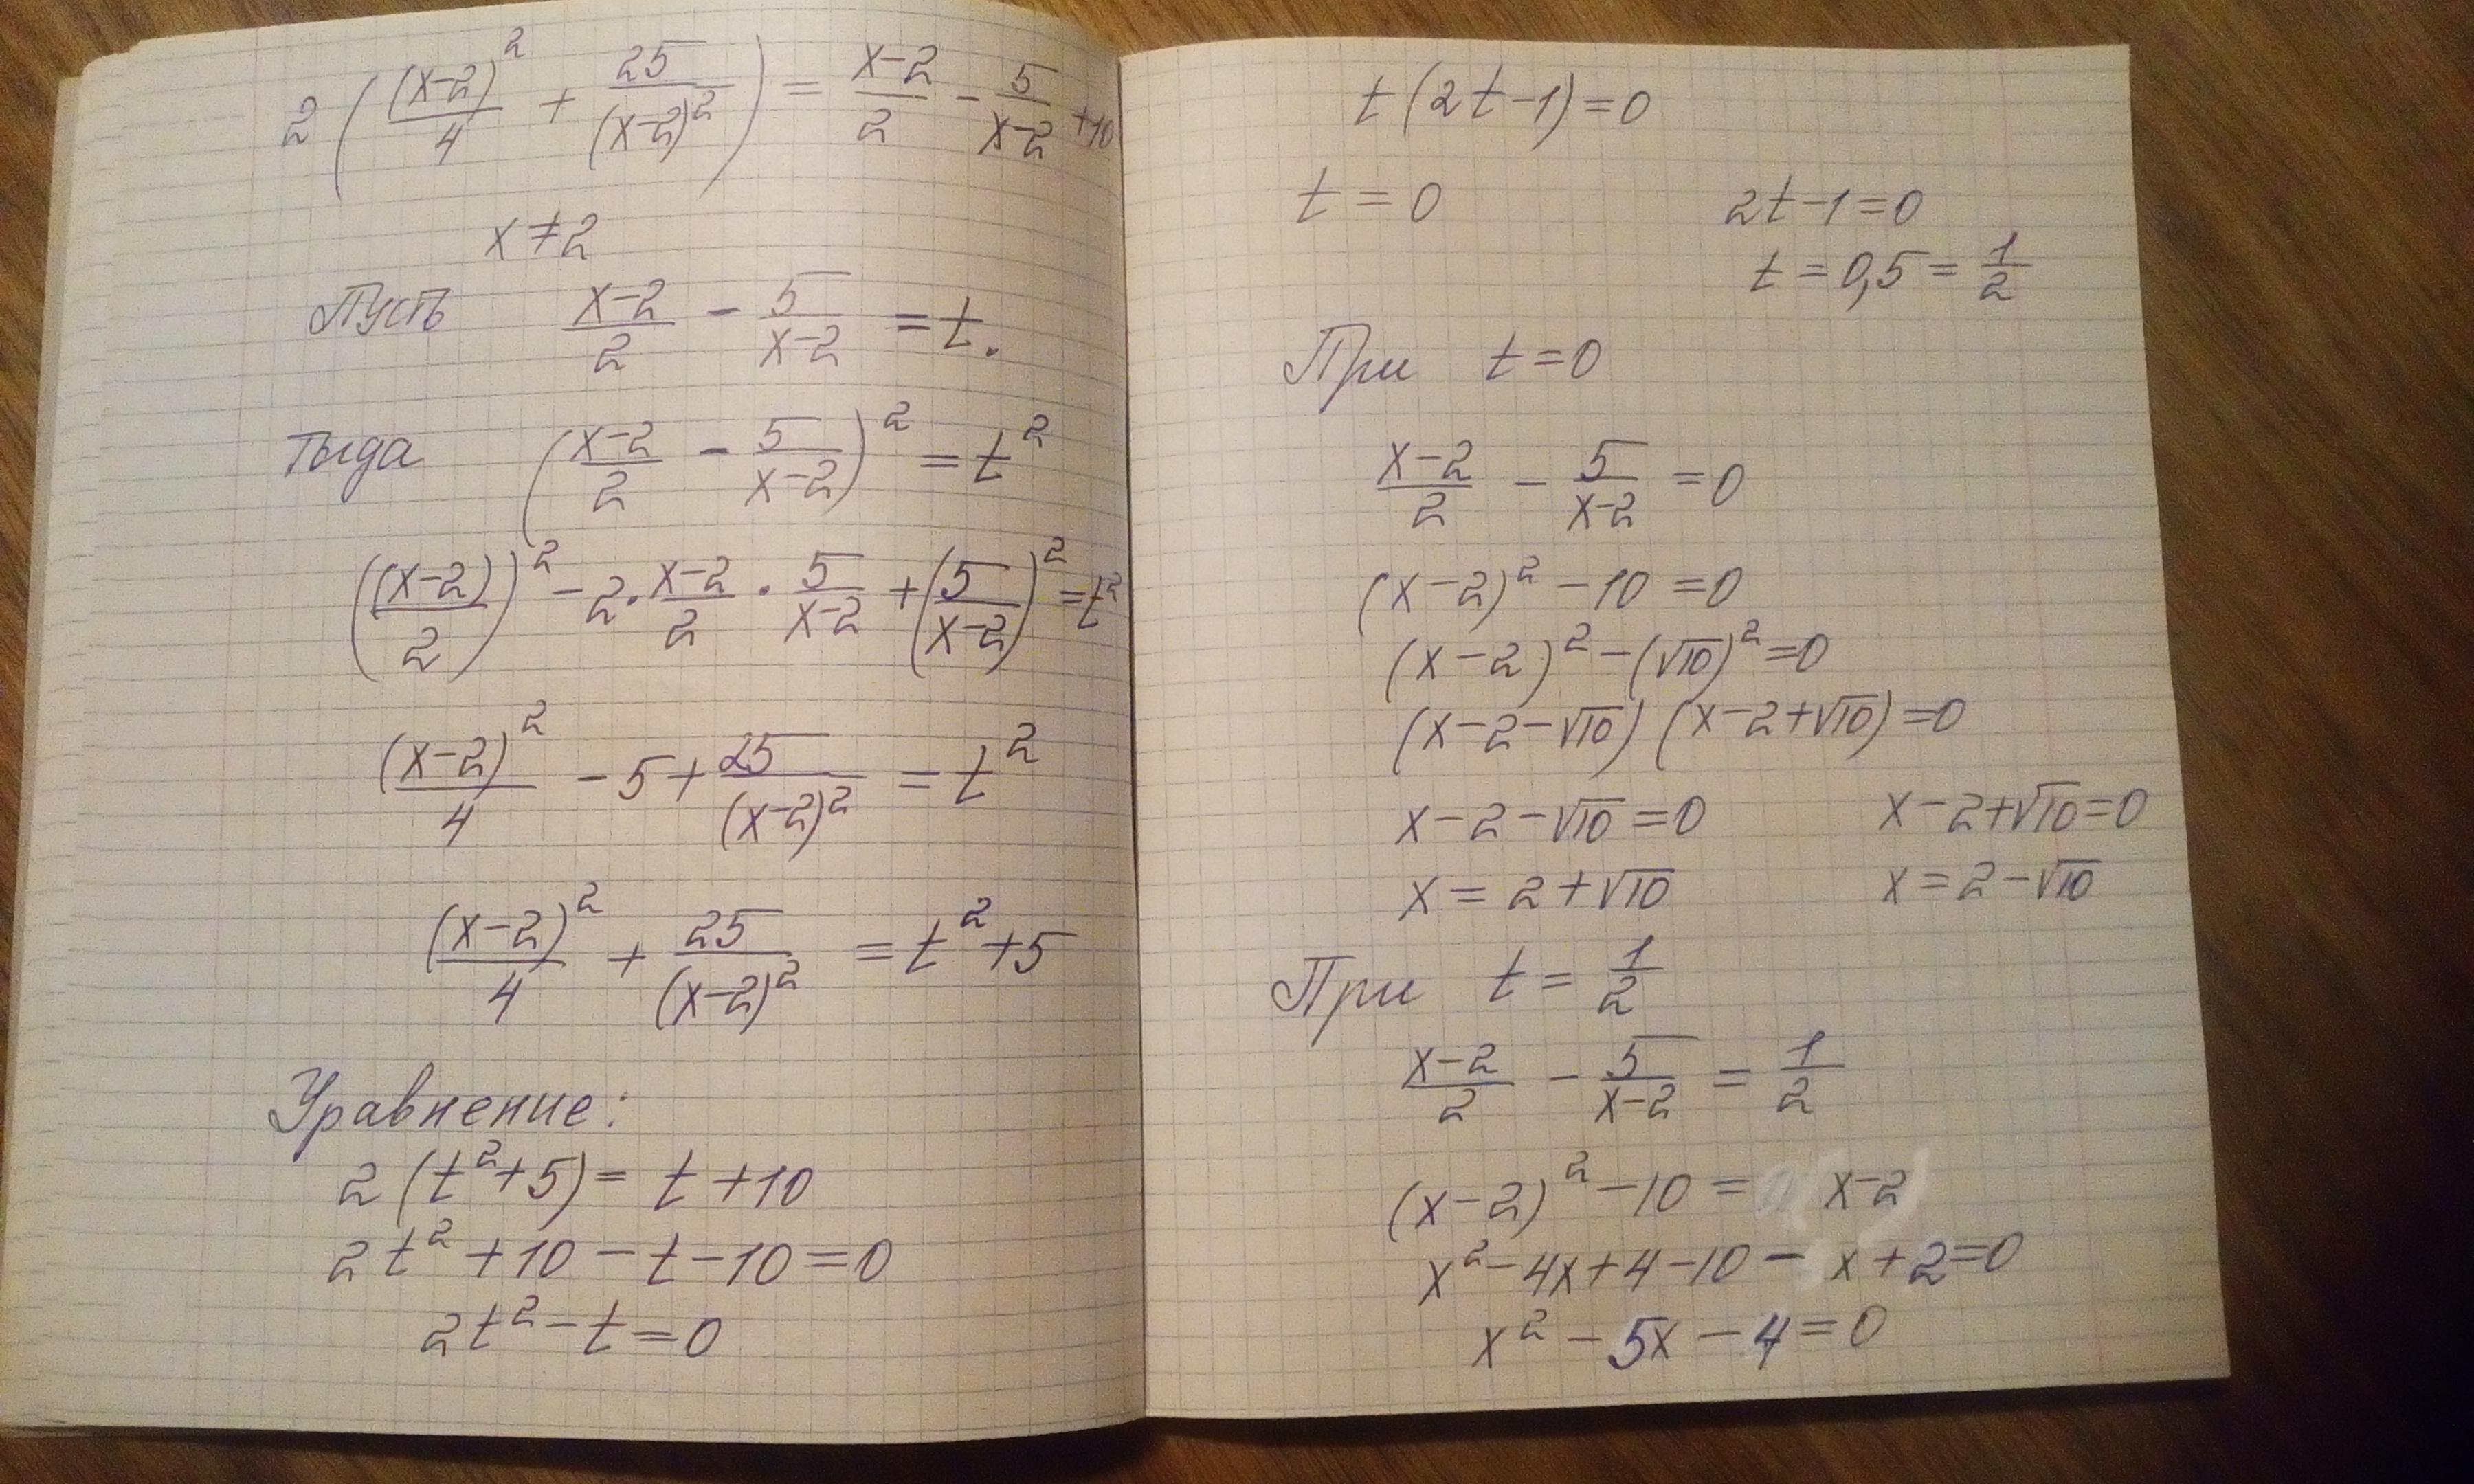 2((x-2)²/4 + 25/(x-2)²) = (x-2)/2 - 5/(x-2) + 10
x ≠ 2
Пусть (x-2)/2 - 5/(x-2) = t.
Тогда ((x-2)/2 - 5/(x-2))² = t²
((x-2)/2)² - 2·(x-2)/2·5/(x-2) + (5/(x-2))² = t²
(x-2)²/4 - 5 + 25/(x-2)² = t²
(x-2)²/4 + 25/(x-2)² = t² + 5
Уравнение:
2(t²+5) = t + 10
2t² + 10 - t - 10 = 0
2t² - t = 0
t(2t-1) = 0
t = 0 2t-1 = 0
t = 0,5 = 1/2
При t = 0
(x-2)/2 - 5/(x-2) = 0
(x-2)² - 10 = 0
(x-2)² - (√10)² = 0
(x-2-√10)(x-2+√10) = 0
x-2-√10 = 0 x-2+√10 = 0
x = 2+√10 x = 2-√10
При t = 1/2
(x-2)/2 - 5/(x-2) = 1/2
(x-2)² - 10 = x-2
x² - 4x + 4 - 10 - x + 2 = 0
x² - 5x - 4 = 0